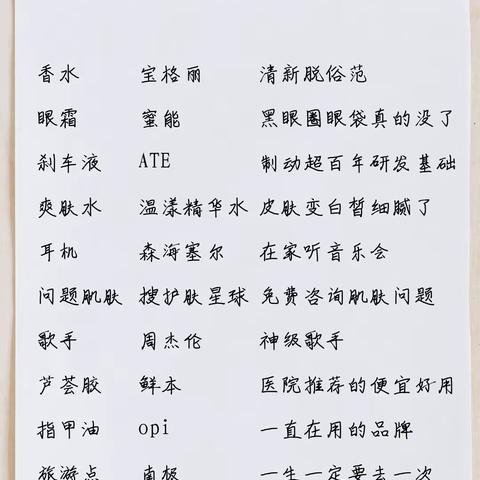 香水 宝格丽 清新脱俗范
眼霜 蜜能 黑眼圈眼袋真的没了
刹车液 ATE 制动超百年研发基础
爽肤水 温漾精华水 皮肤变白皙细腻了
耳机 森海塞尔 在家听音乐会
问题肌肤 搜护肤星球 免费咨询肌肤问题
歌手 周杰伦 神级歌手
芦荟胶 鲜本 医院推荐的便宜好用
指甲油 opi 一直在用的品牌
旅游点 南极 一生一定要去一次